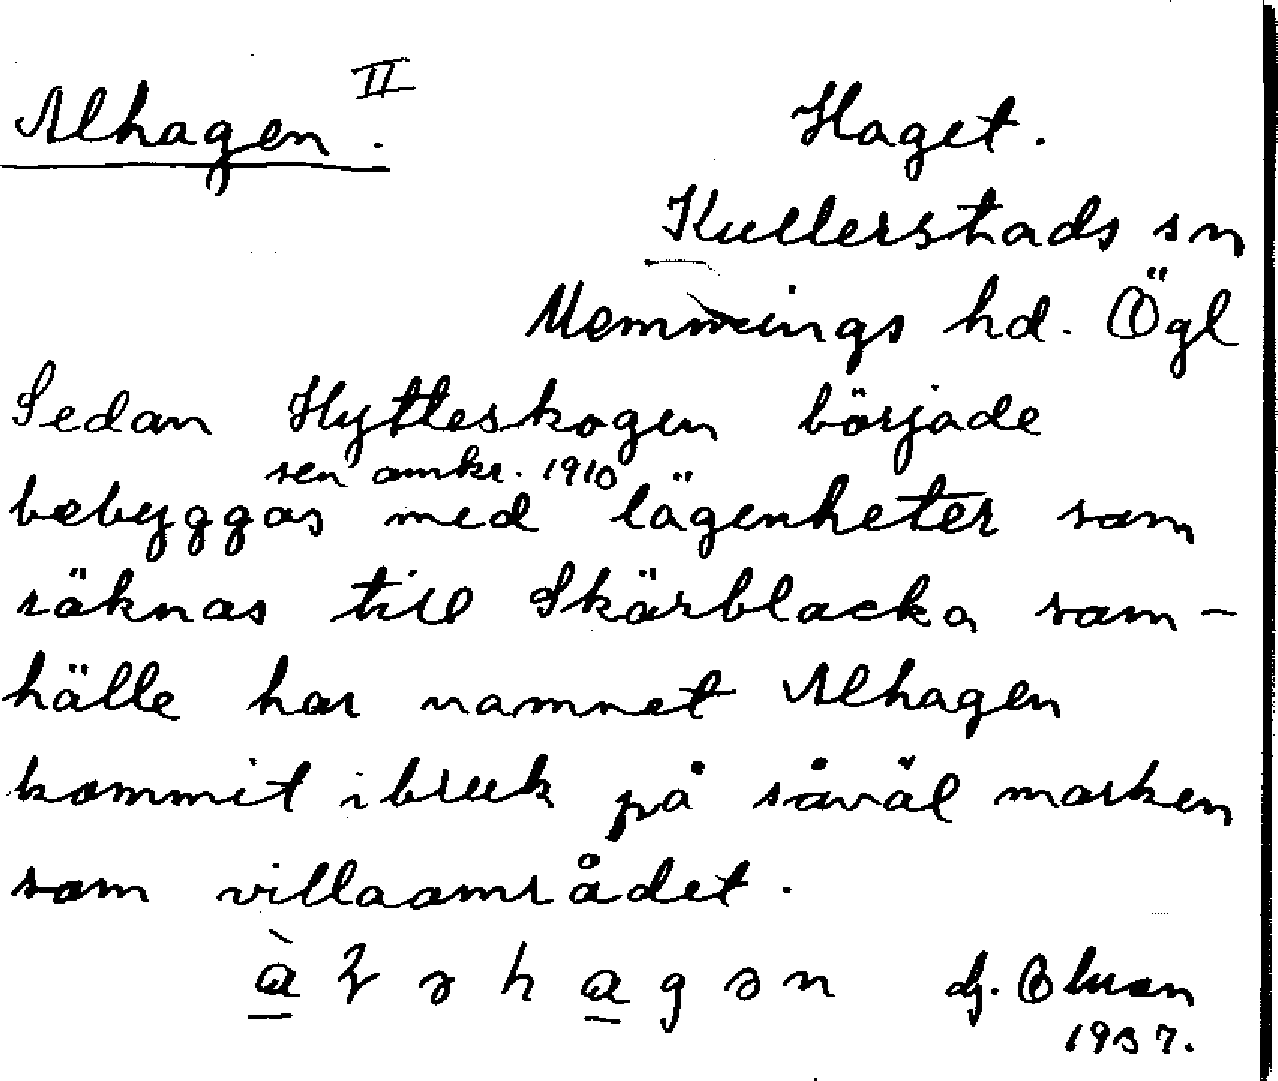 Alhagen II.
Haget.
Kullerstads sn
Memmings hd. Ögl
Sedan Hytteskogen började
sen omkr. 1910
bebyggas med lägenheter som
räknas till Skärblacka sam-
hälle har namnet Alhagen
kommit i bruk på såväl marken
som villaområdet.
1937.